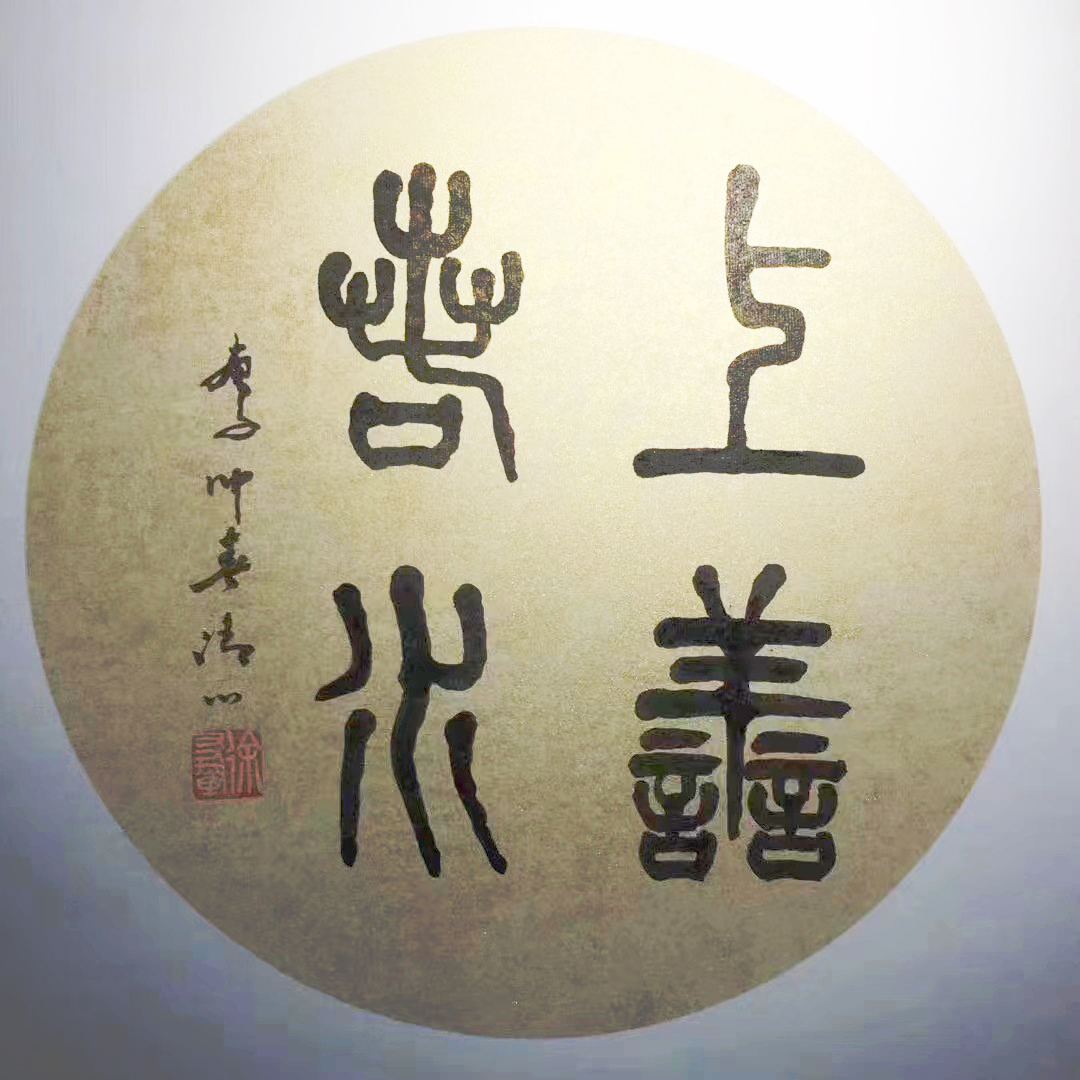 上善
若水
庚子仲春清心
徐